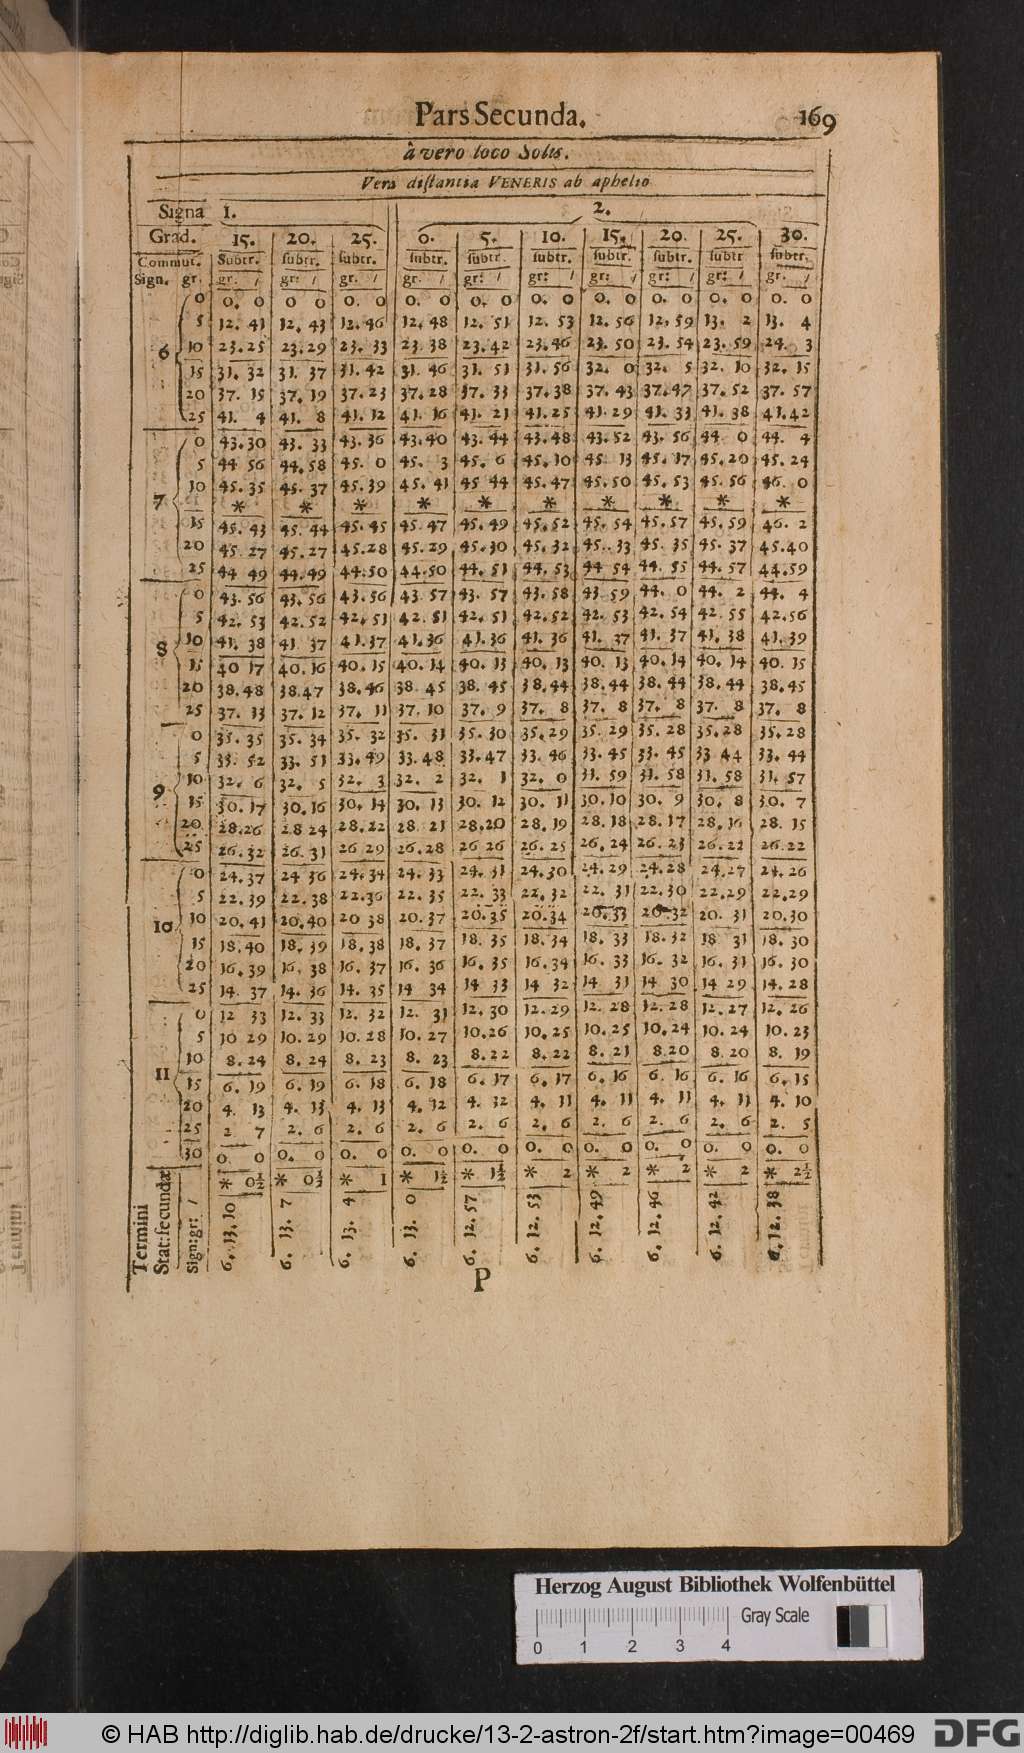 Pars Secunda. 169
à vero loco Solis.
Vera distantia VENERIS ab aphelio
Signa 1. 2.
Grad. 15. 20. 25. 0. 5. 10. 15. 20. 25. 30.
Commut. Subtr. subtr. subtr. subtr. subtr. subtr. subtr. subtr. subtr subtr.
Sign. gr. gr. / gr: / gr. / gr. / gr: / gr: / gr: / gr: / gr: / gr. /
0 0. 0 0 0 0. 0 0. 0 0. 0 0. 0 0. 0 0. 0 0. 0 0. 0
5 12. 41 12. 43 12. 46 12. 48 12. 51 12. 53 12. 56 12. 59 13. 2 13. 4
6 10 23. 25 23. 29 23. 33 23 38 23. 42 23. 46 23. 50 23. 54 23. 59 24. 3
15 31. 32 31. 37 31. 42 31. 46 31. 51 31. 56 32. 0 32. 5 32. 10 32. 15
20 37. 15 37. 19 37. 23 37. 28 37. 33 37. 38 37. 43 37. 47 37. 52 37. 57
25 41. 4 41. 8 41. 12 41. 16 41. 21 41. 25 41. 29 41. 33 41. 38 41. 42
0 43. 30 43. 33 43. 36 43. 40 43. 44 43. 48 43. 52 43. 56 44. 0 44. 4
5 44 56 44. 58 45. 0 45. 3 45. 6 45. 10 45 13 45. 17 45. 20 45. 24
10 45. 35 45. 37 45. 39 45. 41 45 44 45. 47 45. 50 45. 53 45. 56 46. 0
7 * * * * * * * * * *
15 45. 43 45. 44 45. 45 45. 47 45. 49 45. 52 45. 54 45. 57 45. 59 46. 2
20 45. 27 45. 27 45. 28 45. 29 45. 30 45. 32 45. 33 45. 35 45. 37 45. 40
25 44 49 44. 49 44. 50 44. 50 44. 51 44. 53 44 54 44. 55 44. 57 44. 59
0 43. 56 43. 56 43. 56 43 57 43. 57 43. 58 43. 59 44. 0 44. 2 44. 4
5 42. 53 42. 52 42. 51 42. 51 42. 51 42. 52 42. 53 42. 54 42. 55 42. 56
8 10 41. 38 41 37 41. 37 41. 36 41. 36 41. 36 41. 37 41. 37 41. 38 41. 39
15 40 17 40. 16 40. 15 40. 14 40. 13 40. 13 40. 13 40. 14 40. 14 40. 15
20 38. 48 38. 47 38. 46 38. 45 38. 45 38. 44 38. 44 38. 44 38. 44 38. 45
25 37. 13 37. 12 37. 11 37. 10 37. 9 37. 8 37. 8 37. 8 37. 8 37. 8
0 35. 35 35. 34 35. 32 35. 31 35. 30 35. 29 35. 29 35. 28 35. 28 35. 28
5 33. 52 33. 51 33. 49 33. 48 33. 47 33. 46 33. 45 33. 45 33 44 33. 44
9 10 32. 6 32. 5 32. 3 32. 2 32. 1 32. 0 31. 59 31. 58 31. 58 31. 57
15 30. 17 30. 16 30. 14 30. 13 30. 12 30. 11 30. 10 30. 9 30. 8 30. 7
20 28. 26 28 24 28. 22 28 21 28. 20 28. 19 28. 18 28. 17 28. 16 28. 15
25 26. 32 26. 31 26 29 26. 28 26 26 26. 25 26. 24 26. 23 26. 22 26. 22
0 24. 37 24 36 24. 34 24. 33 24. 31 24. 30 24. 29 24. 28 24. 27 24. 26
5 22. 39 22. 38 22. 36 22. 35 22. 33 22. 32 22. 31 22. 30 22. 29 22. 29
10 10 20. 41 20. 40 20 38 20. 37 20. 35 20. 34 20. 33 20. 32 20. 31 20. 30
15 18. 40 18. 39 18. 38 18. 37 18. 35 18. 34 18. 33 18. 32 18 31 18. 30
20 16. 39 16. 38 16. 37 16. 36 16. 35 16. 34 16. 33 16. 32 16. 31 16. 30
25 14. 37 14. 36 14. 35 14 34 14 33 14 32 14 31 14 30 14 29 14. 28
0 12 33 12. 33 12. 32 12. 31 12. 30 12. 29 12. 28 12. 28 12. 27 12. 26
5 10 29 10. 29 10. 28 10. 27 10. 26 10. 25 10. 25 10. 24 10. 24 10. 23
10 8. 24 8. 24 8. 23 8. 23 8. 22 8. 22 8. 21 8 20 8. 20 8. 19
11 15 6. 19 6. 19 6. 18 6. 18 6. 17 6. 17 6. 16 6. 16 6. 16 6. 15
20 4. 13 4. 13 4. 13 4. 12 4. 12 4. 11 4. 11 4. 11 4. 11 4. 10
25 2 7 2. 6 2. 6 2. 6 2. 6 2. 6 2. 6 2. 6 2. 6 2. 5
30 0. 0 0. 0 0. 0 0. 0 0. 0 0. 0 0. 0 0. 0 0. 0 0. 0
* 0½ * 0½ * 1 * 1½ * 1½ * 2 * 2 * 2 * 2 * 2½
Termini
Stat: secundæ
Sign: gr: / 6. 13. 10 6. 13. 7 6. 13. 4 6. 13. 0 6. 12. 57 6. 12. 53 6. 12. 49 6. 12. 46 6. 12. 42 6. 12. 38
P
Herzog August Bibliothek Wolfenbüttel
Gray Scale
0 1 2 3 4
© HAB http://diglib.hab.de/drucke/13-2-astron-2f/start.htm?image=00469 DFG